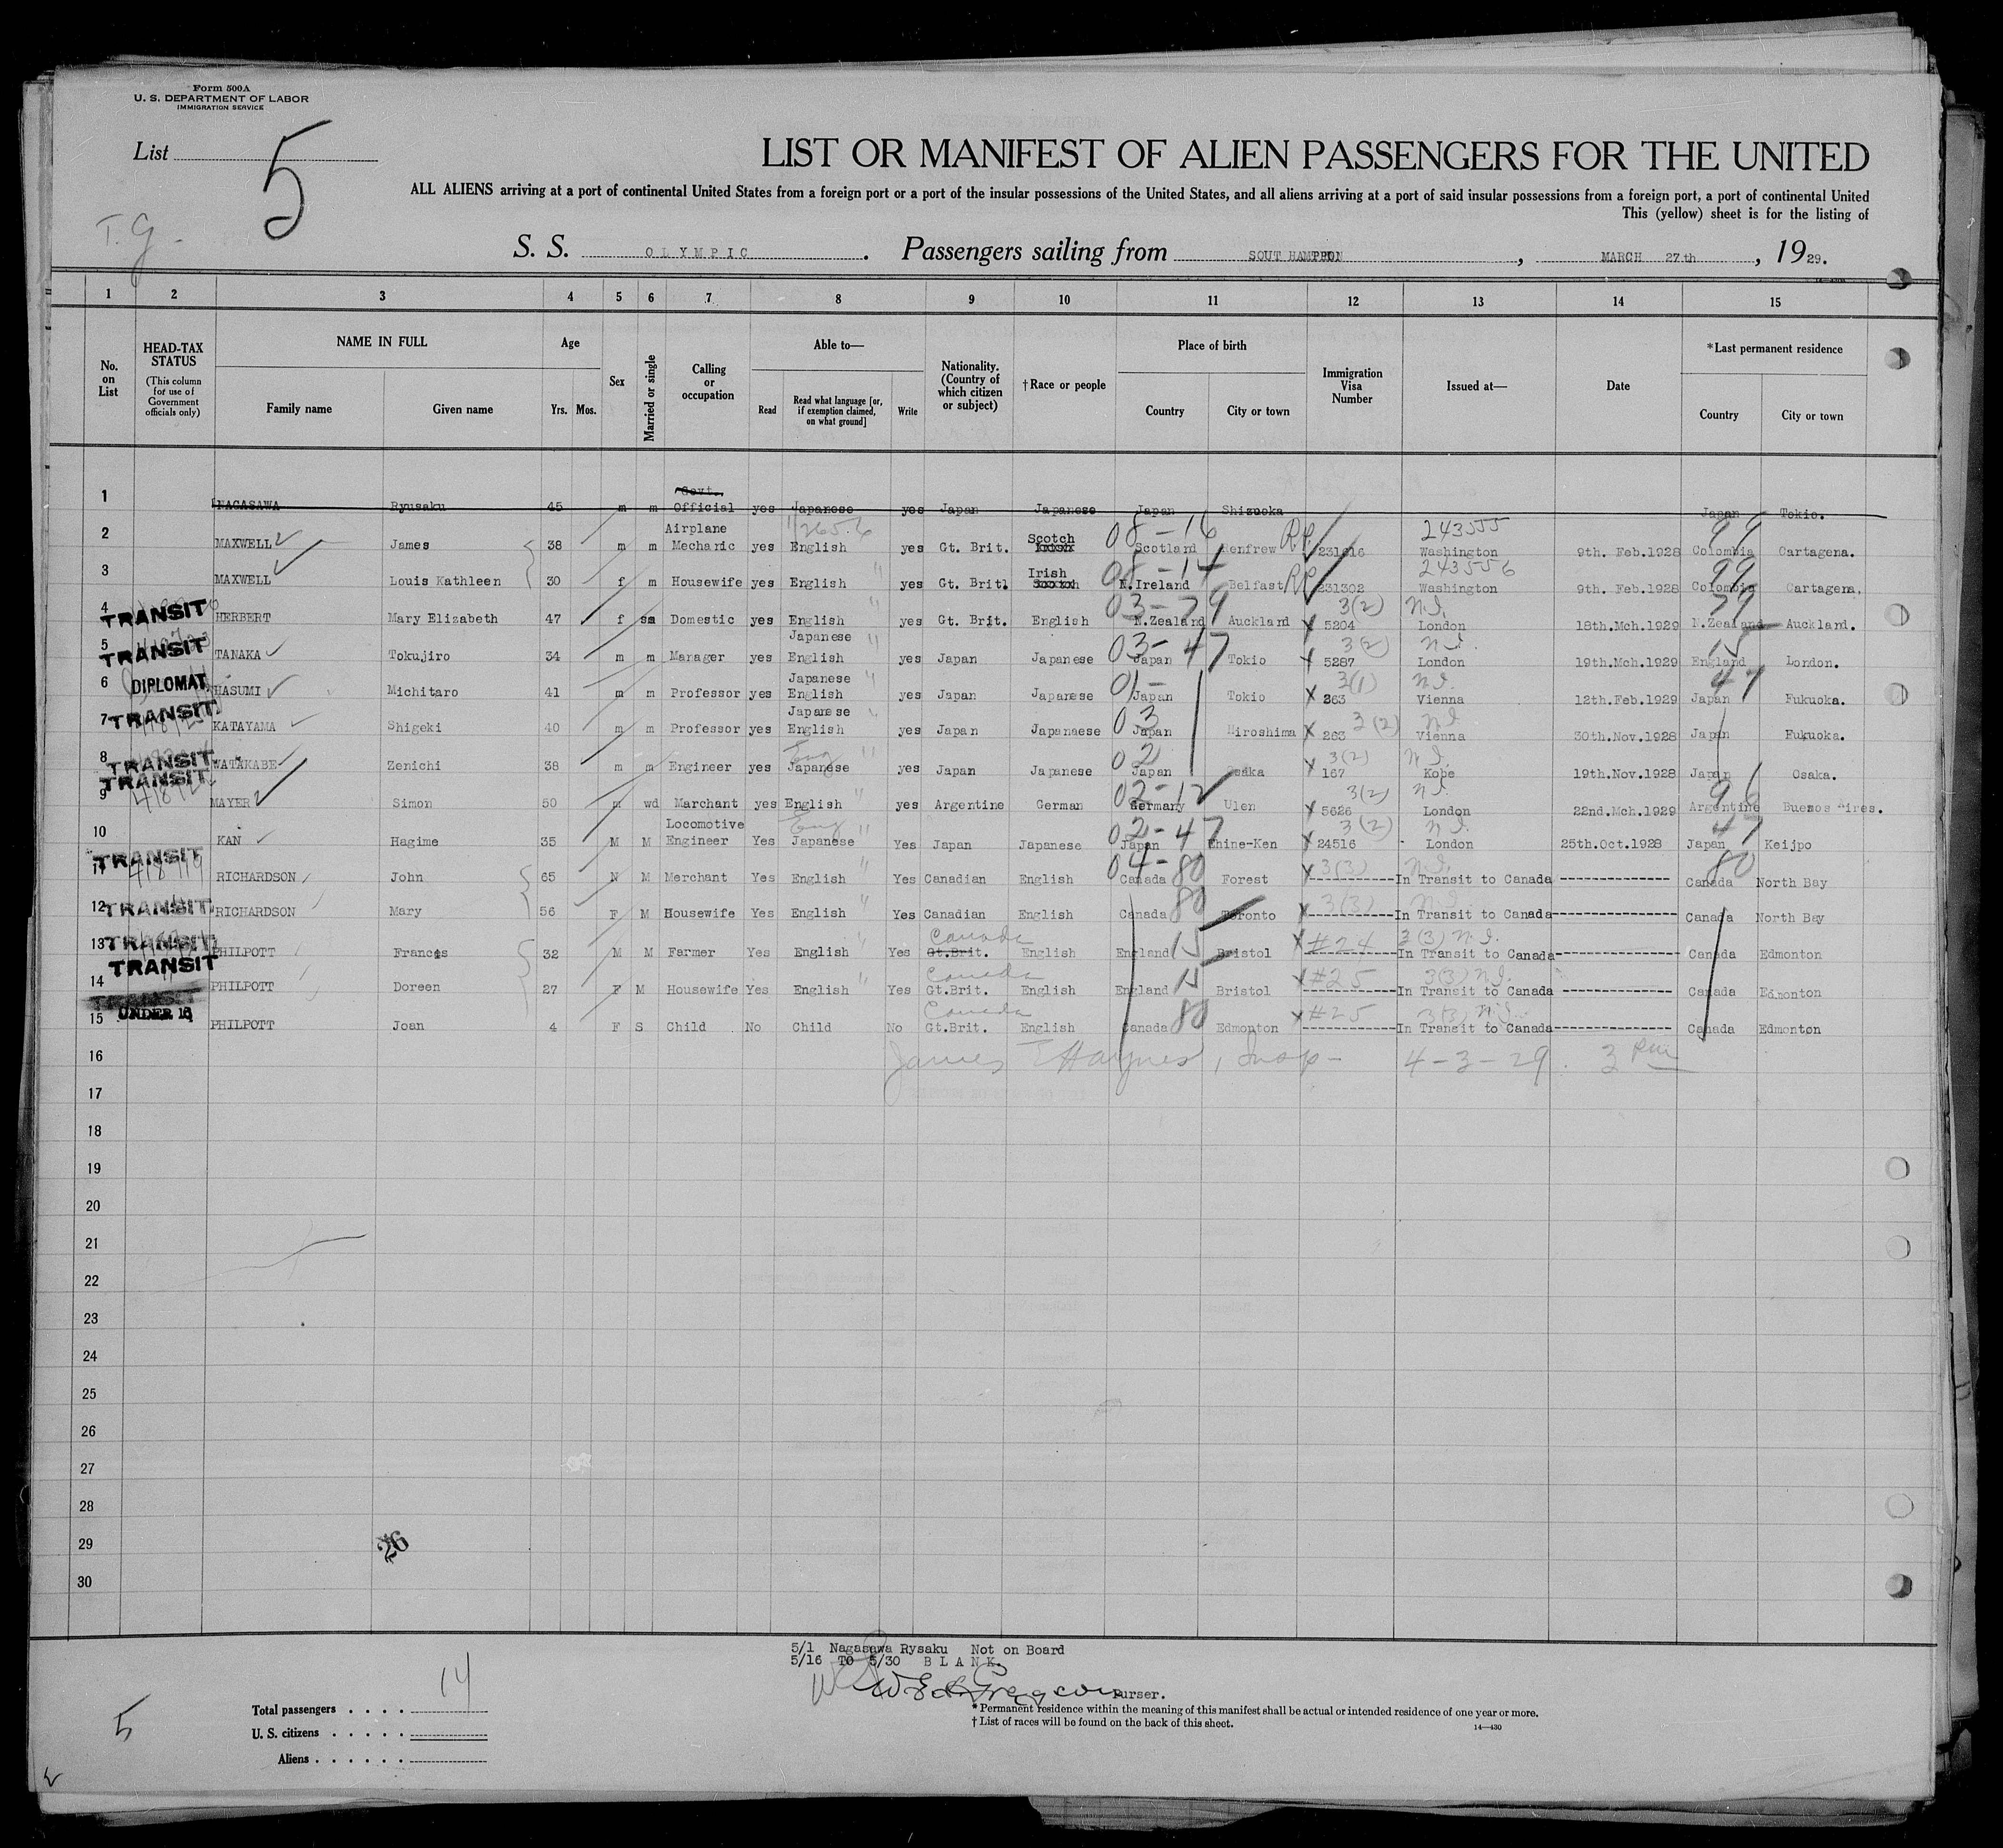 Form 500A
U. S. DEPARTMENT OF LABOR
IMMIGRATION SERVICE
List 5
T.G.
LIST OR MANIFEST OF ALIEN PASSENGERS FOR THE UNITED
ALL ALIENS arriving at a port of continental United States from a foreign port or a port of the insular possessions of the United States, and all aliens arriving at a port of said insular possessions from a foreign port, a port of continental United
This (yellow) sheet is for the listing of
S. S. OLYMPIC. Passengers sailing from SOUTHAMPTON, MARCH 27th, 1929.
1 2 3 4 5 6 7 8 9 10 11 12 13 14 15
No. on List
HEAD-TAX STATUS (This column for use of Government officials only)
NAME IN FULL Family name Given name
Age Yrs. Mos.
Sex
Married or single
Calling or occupation
Able to— Read Read what language [or, if exemption claimed, on what ground] Write
Nationality. (Country of which citizen or subject)
†Race or people
Place of birth Country City or town
Immigration Visa Number
Issued at—
Date
*Last permanent residence Country City or town
1 NAGASAWA Ryusaku 45 m m Govt. Official yes Japanese yes Japan Japanese Japan Shizuoka Japan Tokio.
2 MAXWELL James 38 m m Airplane Mecharic yes English yes Gt. Brit. Scotch 08-16 Scotland Renfrew RP 231616 243555 Washington 9th. Feb.1928 99 Colombia Cartagena.
3 MAXWELL Louis Kathleen 30 f m Housewife yes English yes Gt. Britl Irish 08-14 N.Ireland Belfast RP 231302 243556 Washington 9th. Feb.1928 99 Colombia Cartagena,
4 TRANSIT HERBERT Mary Elizabeth 47 f Domestic yes English yes Gt. Brit. English 03-79 N.Zealand Auckland 3(2) 5204 N.I. London 18th.Mch.1929 79 N.Zealand Auckland.
5 TRANSIT TANAKA Tokujiro 34 m m Manager yes Japanese English yes Japan Japanese 03-47 Japan Tokio 3(2) 5287 N.I. London 19th.Mch.1929 15 England London.
6 DIPLOMAT HASUMI Michitaro 41 m m Professor yes Japanese English yes Japan Japanese 01- Japan Tokio 3(1) 263 N.I. Vienna 12th.Feb.1929 47 Japan Fukuoka.
7 TRANSIT KATAYAMA Shigeki 40 m m Professor yes Japanese English yes Japan Japanaese 03 Japan Hiroshima 263 3(2) N.I. Vienna 30th.Nov.1928 Japan Fukuoka.
8 TRANSIT WATAKABE Zenichi 38 m m Engineer yes Eng Japanese yes Japan Japanese 02 Japan Osaka 3(2) 167 N.I. Kobe 19th.Nov.1928 Japan Osaka.
9 TRANSIT MAYER Simon 50 m wd Marchant yes English yes Argentine German 02-12 Germany Ulen 3(2) 5626 N.I. London 22nd.Mch.1929 96 Argentine Buenos Aires.
10 KAN Hagime 35 M M Locomotive Engineer Yes Eng Japanese Yes Japan Japanese 02-47 Japan Ehine-Ken 3(2) 24516 N.I. London 25th.Oct.1928 47 Japan Keijpo
11 TRANSIT RICHARDSON John 65 M M Merchant Yes English Yes Canadian English 04-80 Canada Forest 3(3) N.I. In Transit to Canada 80 Canada North Bay
12 TRANSIT RICHARDSON Mary 56 F M Housewife Yes English Yes Canadian English 80 Canada Toronto 3(3) N.I. In Transit to Canada Canada North Bay
13 TRANSIT PHILPOTT Francis 32 M M Farmer Yes English Yes Canada Gt.Brit. English England 15 Bristol #24 3(3) N.I. In Transit to Canada Canada Edmonton
14 TRANSIT PHILPOTT Doreen 27 F M Housewife Yes English Yes Canada Gt.Brit. English England 15 Bristol #25 3(3) N.I. In Transit to Canada Canada Edmonton
15 TRANSIT UNDER 16 PHILPOTT Joan 4 F S Child No Child No Canada Gt.Brit. English Canada 80 Edmonton #25 3(3) N.I. In Transit to Canada Canada Edmonton
16 James E Haynes, Insp- 4-3-29. 3 pm
17
18
19
20
21
22
23
24
25
26
27
28
29
26
30
5/1 Nagasawa Rysaku Not on Board
5/16 TO 5/30 BLANK.
Purser.
14
5
Total passengers
U. S. citizens
Aliens
* Permanent residence within the meaning of this manifest shall be actual or intended residence of one year or more.
† List of races will be found on the back of this sheet.
14—430